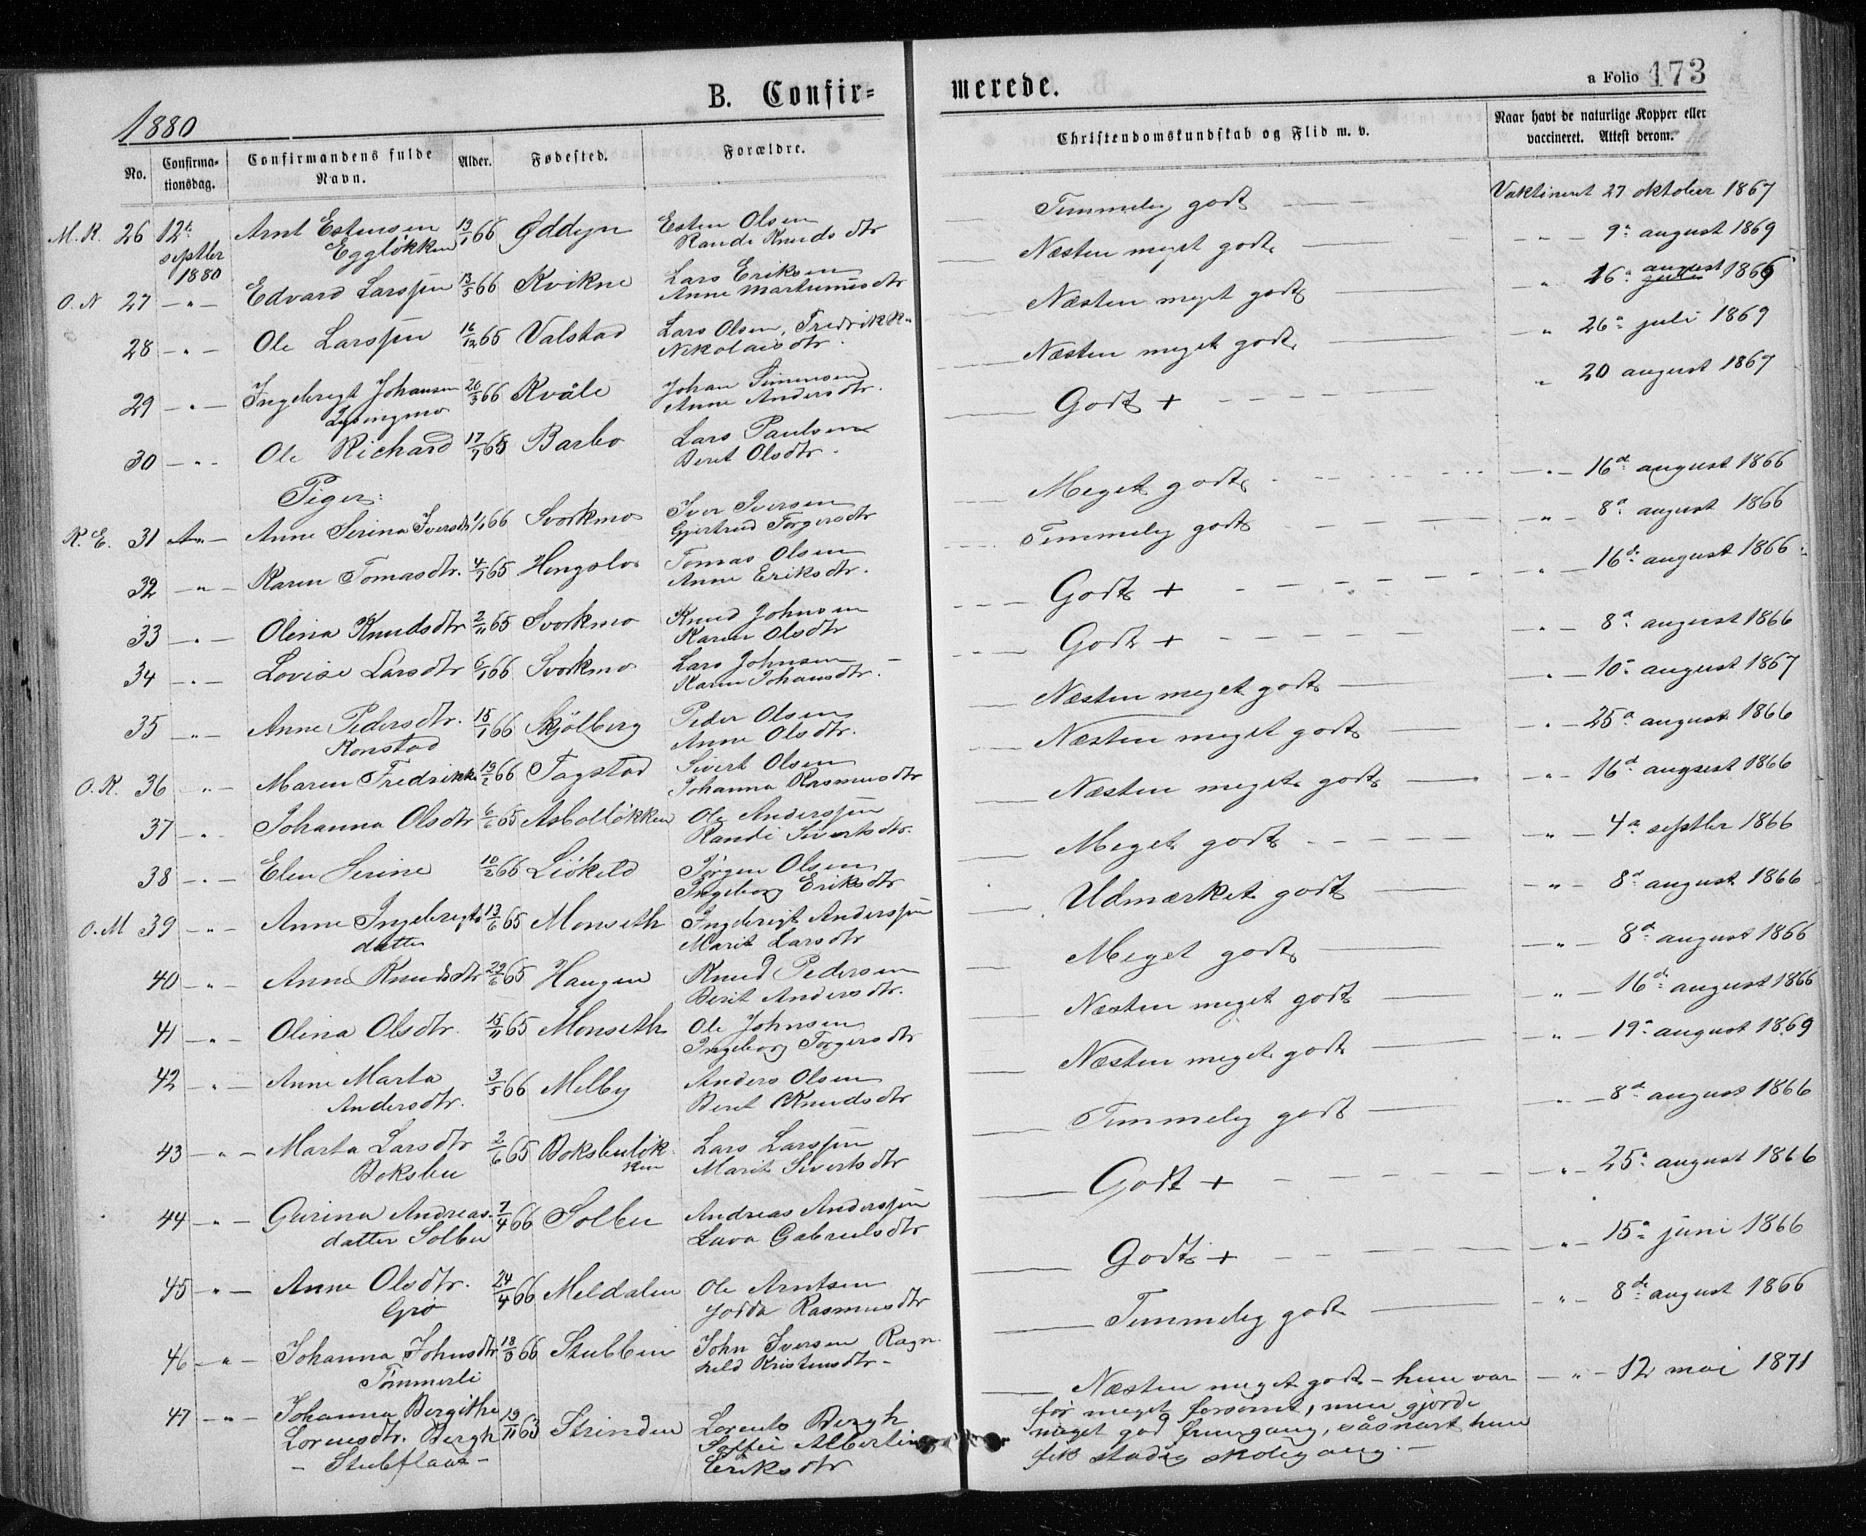 B. Confir=
merede.
a Folio 173
1880
No.
Confirma-
tionsdag.
Confirmandens fulde
Navn.
Alder.
Fødested.
Forældre.
Christendomskundskab og Flid m. v.
Naar havt de naturlige Kopper eller
vaccineret. Attest derom.
M. R. 26 12te septbr 1880 Arnt Estensen 19/1 66 Øddyn Esten Olsen Temmelig godt Vaktineret 27 oktober 1867
Eggløkken Randi Knudsdtr
O. N 27 - " - Edvard Larssøn 13/5 66 Kvikne Lars Eriksen Næsten meget godt - " - 9a august 1869
Anne Martinusdtr
28 - " - Ole Larssøn 16/12 65 Valstad Lars Olsen, Fredrikke Næsten meget godt " 16a august 1869
Nikolaisdtr.
29 - " - Ingebrigt Johansen 20/3 66 Kvåle Johan Simensen Næsten meget godt - " - 26a juli 1869
Anne Andersdtr.
30 - " - Ole Richard 17/7 65 Barbo Lars Paulsen Godt + " - 20 august 1867
Beret Olsdtr.
Piger:
R. E. 31 - " - Anne Serina Iversdtr 1/1 66 Svorkmo Iver Iversen Meget godt - " - 16de august 1866
Gjertrud Torgersdtr
32 - " - Karen Tomasdtr. 4/7 65 Hongslo Tomas Olsen Temmelig godt " - 8a august 1866
Anne Eriksdtr.
33 - " - Olina Knudsdtr 2/11 65 Svorkmo Knud Johnsen Godt + - " - 16de august 1866
Karen Olsdtr
34 - " - Lovise Larsdtr 6/1 66 Svorkmo Lars Johnsen Godt + - " - 8a august 1866
Karen Johansdtr.
35 - " - Anne Pedersdtr. 15/1 66 Skjölberg Peder Olsen Næsten meget godt - " - 10a august 1867
Konstad Anne Olsdtr.
O. R. 36 - " - Maren Fredrikke 19/2 66 Fagstad Sivert Olsen Næsten meget godt - " - 25a august 1866
Johanna Rasmusdtr
37 - " - Johanna Olsdtr 6/6 65 Asbolløkken Ole Anderssøn Næsten meget godt - " - 16d august 1866
Randi Sivertsdtr.
38 - " - Elen Serine 10/2 66 Liökeld Jørgen Olsen Meget godt - " - 4a septbr 1866
Ingeborg Eriksdtr
O. M 39 - " - Anne Ingebrigts 13/6 65 Monseth Ingebrigt Anderssøn Udmærket godt - " - 8d august 1866
datter Marit Larsdtr
40 - " - Anne Knudsdtr 29/6 65 Haugen Knud Pedersen Meget godt - " - 8d august 1866
Berit Andersdtr.
41 - " - Olina Olsdtr. 15/11 65 Monseth Ole Johnsen Næsten meget godt " - 16de august 1866
Ingeborg Torgersdtr
42 " - Anne Marta 3/5 66 Melby Anders Olsen Næsten meget godt - " - 19a august 1869
Andersdtr. Beret Knudsdtr
43 - " - Marta Larsdtr 2/6 65 Boksbuløk- Lars Larssøn Temmelig godt - " - 8d august 1866
Boksbu ken Marit Sivertsdtr
44 - " - Gurina Andreas- 7/4 66 Solbu Andreas Anderssøn Godt + " - 25a august 1866
datter Solbu Gabrielsdtr
45 - " - Anne Olsdtr. 24/4 66 Meldalen Ole Arntsen Godt + " - 15a juni 1866
Gro Rasmusdtr
46 - " - Johanna Johnsdtr 18/3 66 Stubben John Iversen Ragn- Temmelig godt " - 8de august 1866
Tømmerli hild Kristensdtr -
47 - " - Johanna Bergitha 19/11 63 Strinden Lorents Bergh Næsten meget godt - hun var - " - 12 mai 1871
Lorensdtr. Bergh Soffie Albertine før meget forsømt, men gjorde
- Stubflaat - Eriksdtr meget god fremgang, såsnart hun
fik stadig skolegang. -